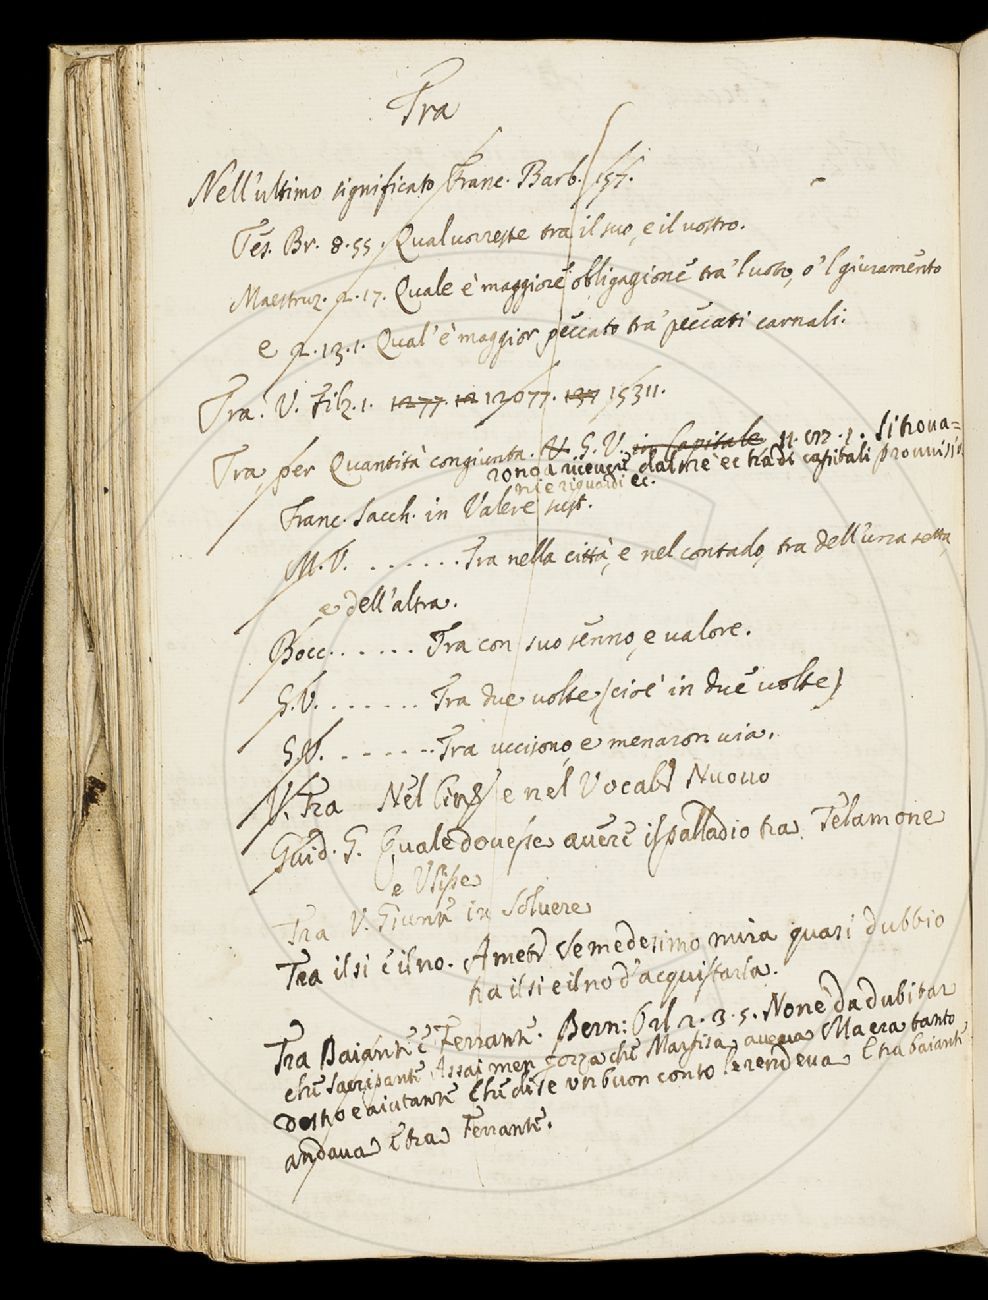 Tra
Nell'ultimo significato Franc. Barb. 157.
Tes. Br. 8.55. Qual vorreste tra il suo, e il vostro.
Maestruz. 2.17. Quale è maggiore obligagione tra'l voto, o'l giuramento
e 2.13.1. Qual'è maggior peccato tra' peccati carnali.
Tra. V. Filz. 1. 1277 12 12077. 137 15311.
Tra per Quantità congiunta. G. V. in Capitale 11. . 1. Si trova=
rono a ricevere dal mè ec tra di capitali provvisi
ni e riguardi ec.
Franc. Sacch. in Valere sust.
M. V. . . . . . . Tra nella città, e nel contado, tra dell'una setta,
e dell'altra.
Bocc. . . . . . Tra con suo senno, e valore.
G. V. . . . . . . Tra due volte (cioè in due volte)
G. V. . . . . . . Tra uccisono, e menaron via.
V. Tra Nel e nel Vocabl Nuovo
Guid. G. Quale dovesse avere il palladio tra Telamone
e Ulisse
Tra V. Giunte in Solvere
Tra il si e il no. Amet Se medesimo mira quasi dubbio
tra il si e il no d'acquistarla.
Tra Baiante e Ferrante. Bern: Orl 2.3.5. Non è da dubitar
che Sacripante Assai men forza che Marfisa aveva Ma era tanto
destro e aiutante Che di se un buon conto le rendeva E tra baiante
andava e tra Ferrante.